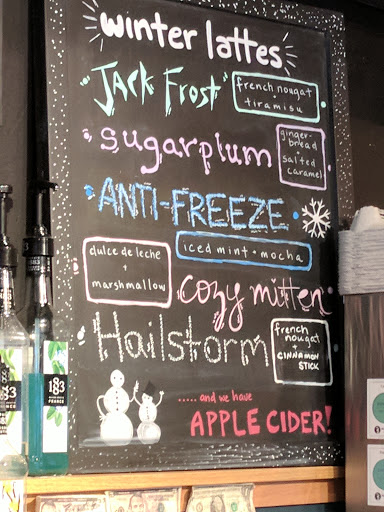 winter lattes
JACK FROST
french nougat
+
tiramisu
sugarplum
ginger-
bread
+
salted
caramel
ANTI-FREEZE
iced mint • mocha
dulce de leche
+
marshmallow
cozy mitten
Hailstorm
french
nougat
+
CINNAMON
STICK
..... and we have
APPLE CIDER!
1883
FRANCE